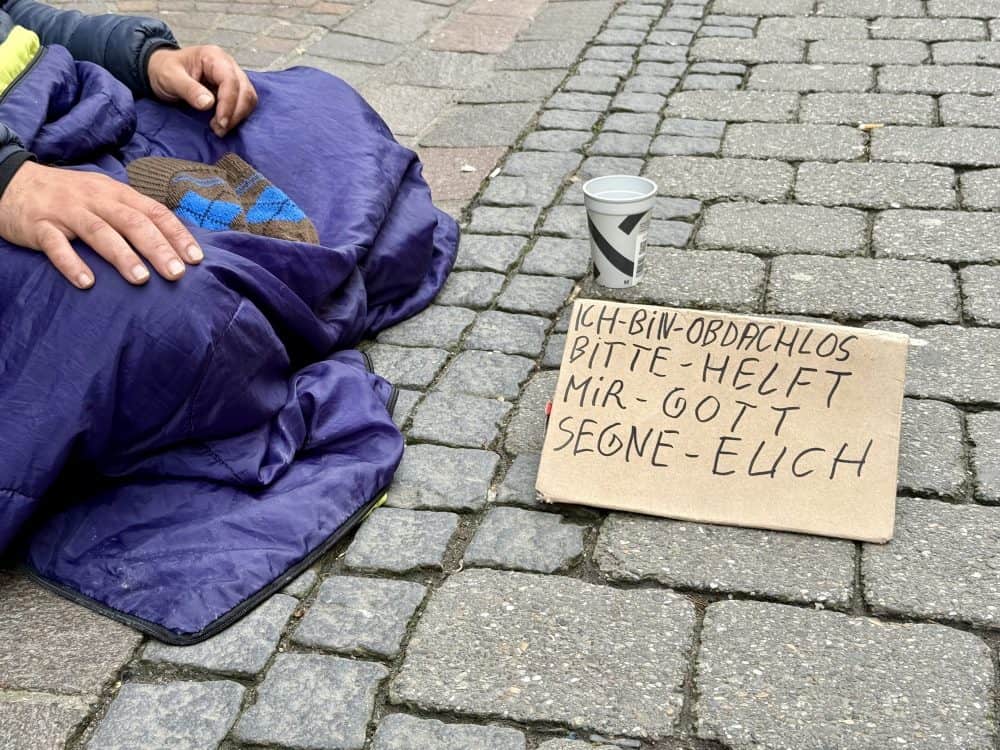 ICH-BIN-OBDACHLOS
BITTE-HELFT
MIR-GOTT
SEGNE-EUCH